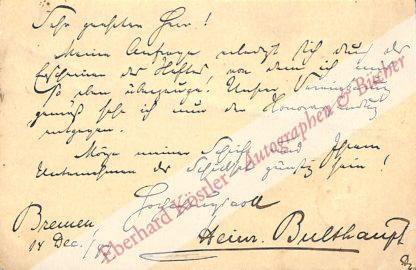 Sehr geehrter Herr!
Meine Anfrage erledigt sich durch das
Erscheinen des Heftes, von dem ich mich
so eben überzeuge. Unser
gemäß sehe ich nur der
entgegen.
Möge meiner und Ihrem
Unternehmen das Schicksal günstig sein!
Hochachtungsvoll
Bremen
14 Dec.
Heinr. Bulthaupt
Eberhard Köstler - Autographen & Bücher